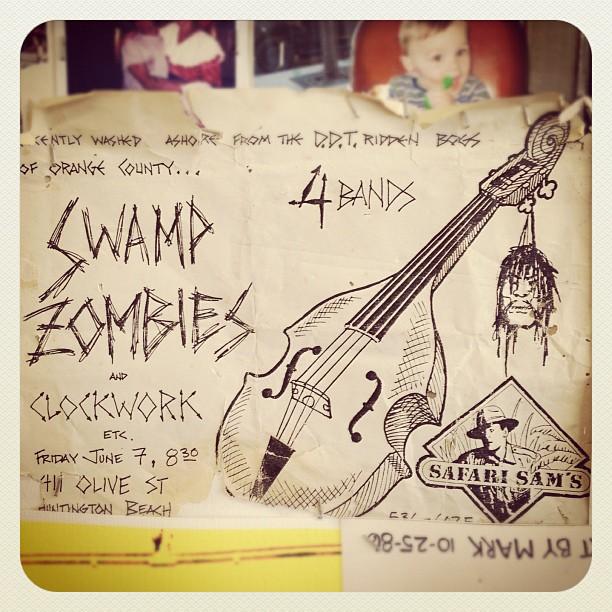 CENTLY WASHED ASHORE FROM THE D.D.T. RIDDEN BOGS
OF ORANGE COUNTY...
4 BANDS
SWAMP
ZOMBIES
AND
CLOCKWORK
ETC.
FRIDAY JUNE 7, 8 30
411 OLIVE ST
HUNTINGTON BEACH
SAFARI SAM'S
T BY MARK 10-25-86